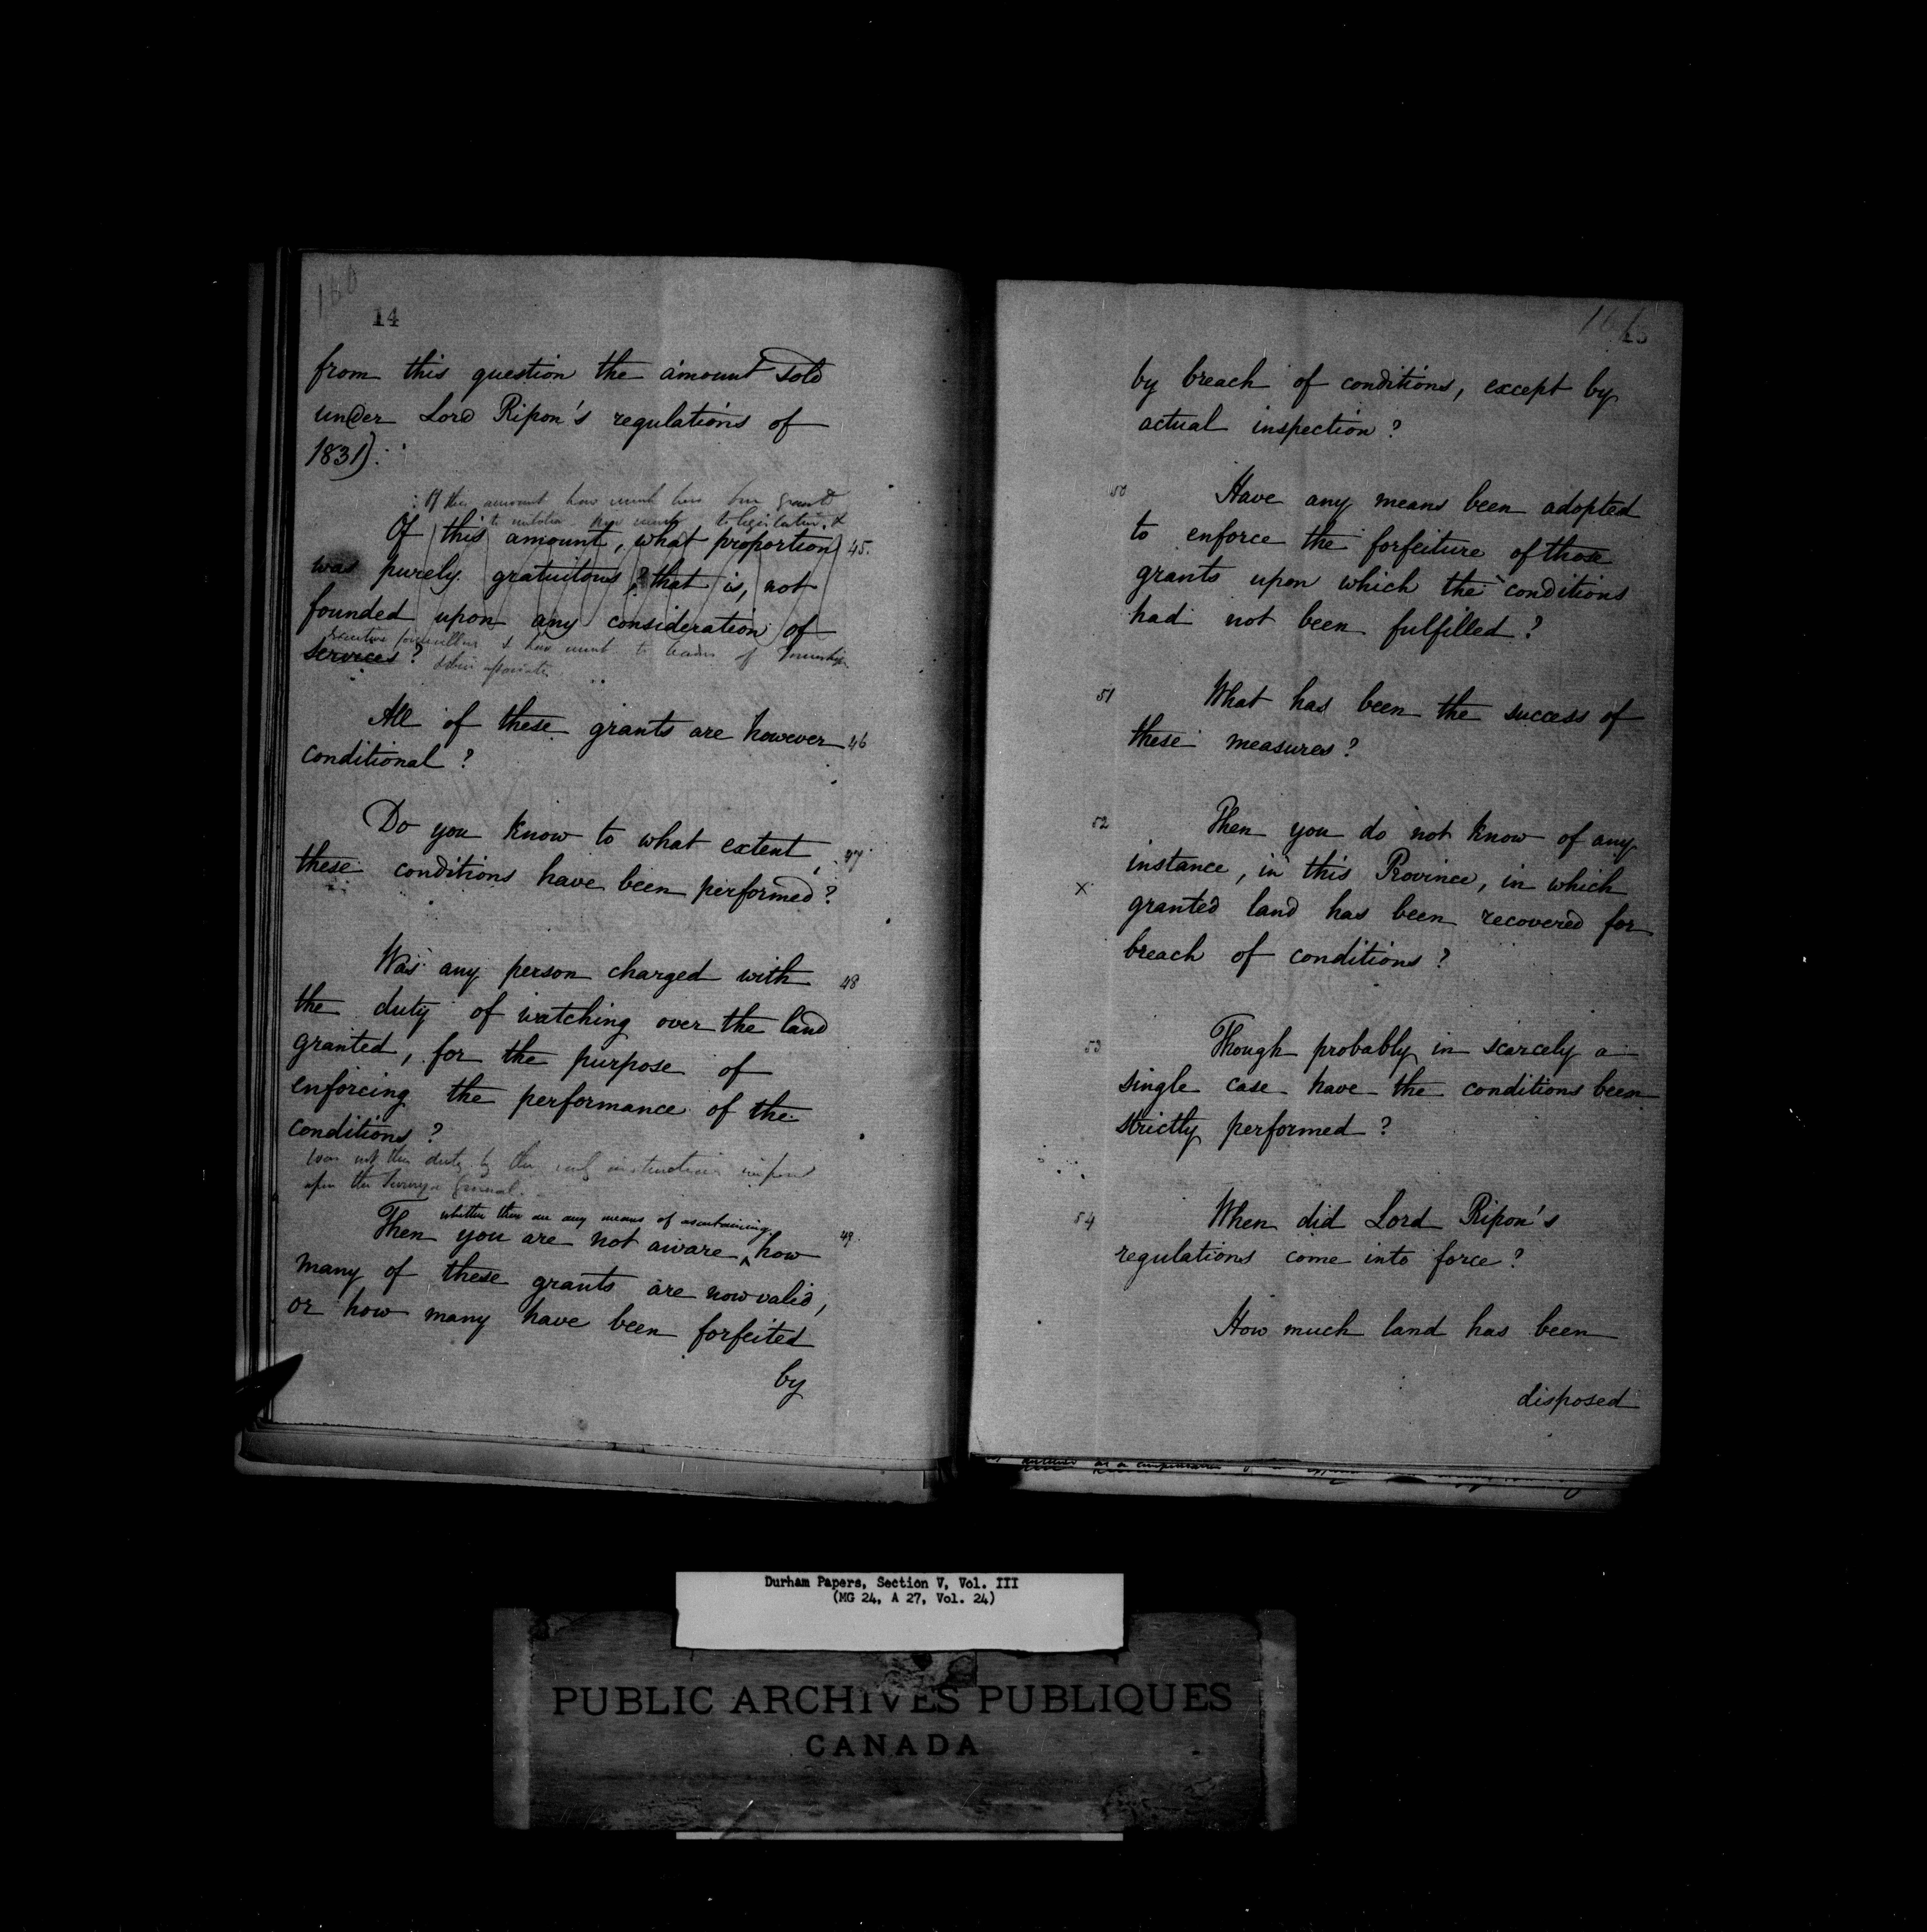 160
14
from this question the amount sold
under Lord Ripon's regulations of
1831).
Of this amount how much have been granted
to how much to legislative, &
Of this amount, what proportion 45.
was purely gratuitous? that is, not
founded upon any consideration of
Executive Councillors & how much to leaders of Townships
services? & their associates
All of these grants are however 46
conditional?
Do you know to what extent 47
these conditions have been performed?
Was any person charged with 48
the duty of watching over the land
granted, for the purpose of
enforcing the performance of the
conditions?
Was not this duty by the instructions imposed
upon the Surveyor General.
whether there are any means of ascertaining
Then you are not aware ^ how 49.
many of these grants are now valid,
or how many have been forfeited
by
15
by breach of conditions, except by
actual inspection?
50 Have any means been adopted
to enforce the forfeiture of those
grants upon which the conditions
had not been fulfilled?
51 What has been the success of
these measures?
52 Then you do not know of any
instance, in this Province, in which
x granted land has been recovered for
breach of conditions?
53 Though probably in scarcely a
single case have the conditions been
strictly performed?
54 When did Lord Ripon's
regulations come into force?
How much land has been
disposed
Durham Papers, Section V, Vol. III
(MG 24, A 27, Vol. 24)
PUBLIC ARCHIVES PUBLIQUES
CANADA